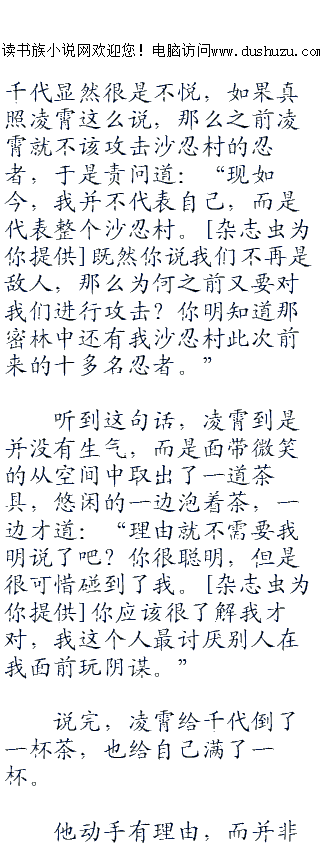 读书族小说网欢迎您！电脑访问www.dushuzu.com
千代显然很是不悦，如果真
照凌霄这么说，那么之前凌
霄就不该攻击沙忍村的忍
者，于是责问道：“现如
今，我并不代表自己，而是
代表整个沙忍村。[杂志虫为
你提供]既然你说我们不再是
敌人，那么为何之前又要对
我们进行攻击？你明知道那
密林中还有我沙忍村此次前
来的十多名忍者。”
听到这句话，凌霄到是
并没有生气，而是面带微笑
的从空间中取出了一道茶
具，悠闲的一边泡着茶，一
边才道：“理由就不需要我
明说了吧？你很聪明，但是
很可惜碰到了我。[杂志虫为
你提供]你应该很了解我才
对，我这个人最讨厌别人在
我面前玩阴谋。”
说完，凌霄给千代倒了
一杯茶，也给自己满了一
杯。
他动手有理由，而并非